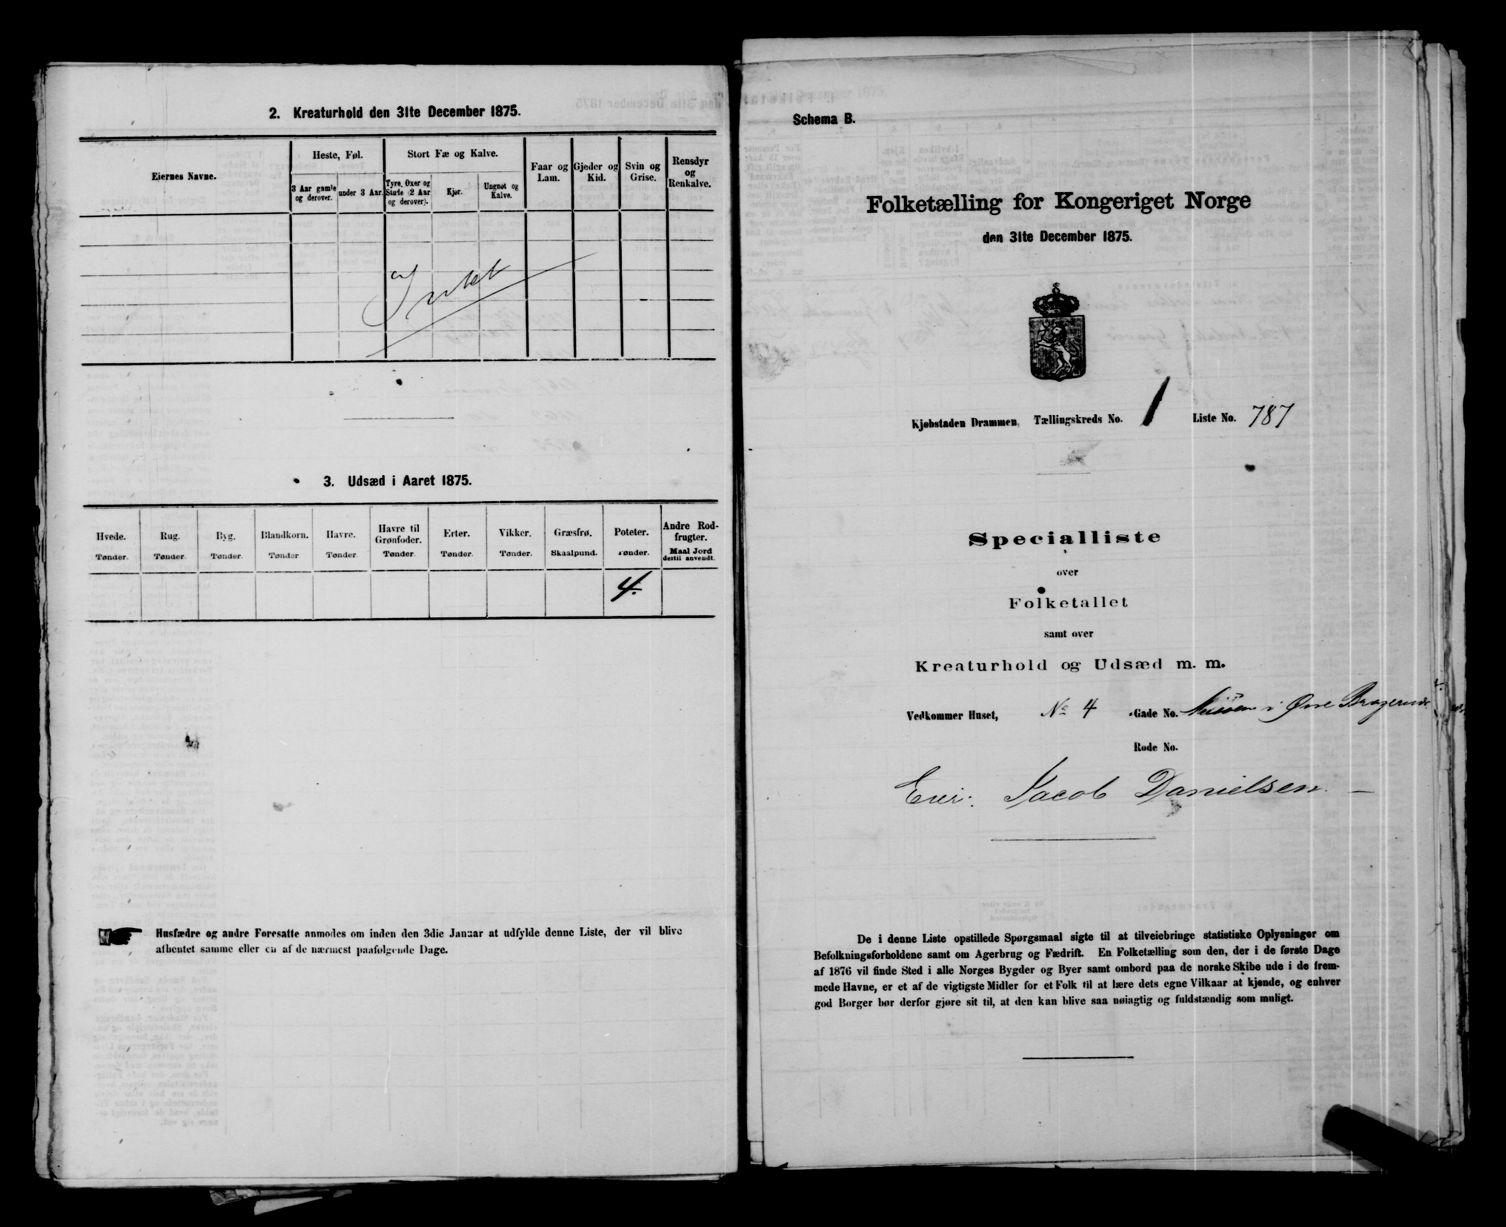 2. Kreaturhold den 31te December 1875.
Eiernes Navne.
Heste, Føl.
Stort Fæ og Kalve.
Faar og Lam.
Gjeder og Kid.
Svin og Grise.
Rensdyr og Renkalve.
3 Aar gamle og derover.
under 3 Aar.
Tyre, Oxer og Stude (2 Aar og derover).
Kjør.
Ungnøt og Kalve.
Intet
3. Udsæd i Aaret 1875.
Hvede. Rug. Byg. Blandkorn. Havre. Havre til Grønfoder. Erter. Vikker. Græsfrø. Poteter. Andre Rodfrugter.
Tønder. Tønder. Tønder. Tønder Tønder. Tønder. Tønder. Tønder. Skaalpund. Tønder. Maal Jord dertil anvendt.
4.
Husfædre og andre Foresatte anmodes om inden den 3die Januar at udfylde denne Liste, der vil blive
afhentet samme eller en af de nærmest paafølgende Dage.
Schema B.
Folketælling for Kongeriget Norge
den 31te December 1875.
Kjøbstaden Drammen, Tællingskreds No. 1 Liste No. 787
Specialliste
over
Folketallet
samt over
Kreaturhold og Udsæd m. m.
Vedkommer Huset, No 4 Gade No. i Øvre
Rode No.
Eier: Jacob Danielsen. —
De i denne Liste opstillede Spørgsmaal sigte til at tilveiebringe statistiske Oplysninger om
Befolkningsforholdene samt om Agerbrug og Fædrift. En Folketælling som den, der i de første Dage
af 1876 vil finde Sted i alle Norges Bygder og Byer samt ombord paa de norske Skibe ude i de frem-
mede Havne, er et af de vigtigste Midler for et Folk til at lære dets egne Vilkaar at kjende, og enhver
god Borger bør derfor gjøre sit til, at den kan blive saa nøiagtig og fuldstændig som muligt.